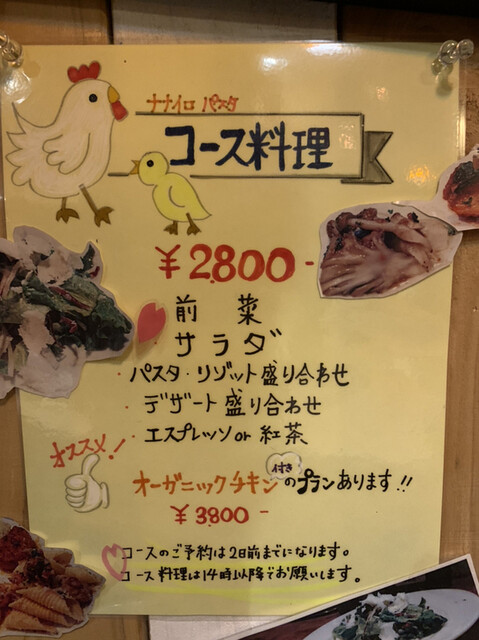 ナナイロ パスタ
コース料理
¥2,800-
前菜
サラダ
・パスタ・リゾット盛り合わせ
・デザート盛り合わせ
・エスプレッソor紅茶
オススメ!
オーガニックチキン付きのプランあります!!
¥3800-
コースのご予約は2日前までになります。
コース料理は14時以降でお願いします。